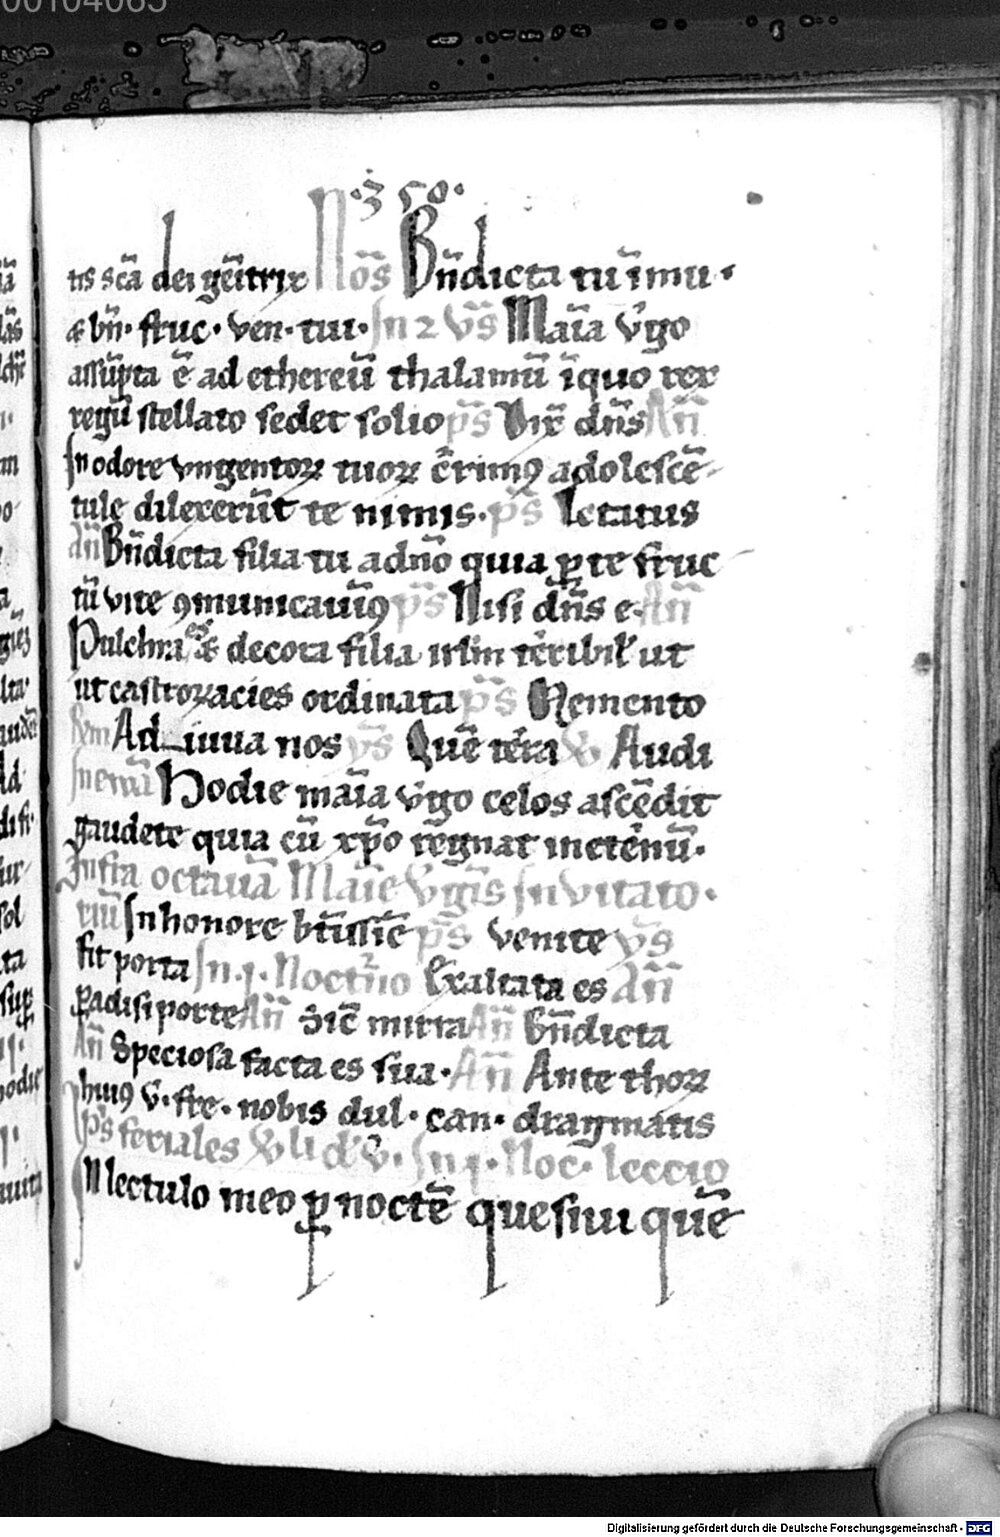 00104065
·350·
tis scā dei gēitrix Nōs Bn̄dicta tu ī mu·
& bn̄· fruc· ven· tui· In 2 vs̄ Maīa v̄go
assūpta ē ad ethereū thalamū īquo rex
regū stellato sedet solio ps̄ Dix̄ dn̄s An̄
In odore vngentoꝝ tuoꝝ c̄rimꝯ adolescē
tule dilexerūt te nimis· ps̄ Letatus
An̄ Bn̄dicta filia tu a dn̄o quia ꝑ te fruc
tū vite ꝯmunicauīꝯ ps̄ Nisi dn̄s e· An̄
Pulchra es & decora filia irl̄m tēribil̄ ut
ut castroꝝ acies ordinata ps̄ Memento
Adiuua nos ys̄ Quē tēra V̄ Audi
In ewā Hodie maīa v̄go celos ascēdit
gaudete quia cū xp̄o rēgnat in etēnū·
Infra octauā Maīe v̄gīs Inuitato·
riū In honore btīssīe ps̄ venite ys̄
fit porta In· j· Noctn̄o Exaltata es An̄
ꝑadisi porte An̄ Sic̄ mirra An̄ bn̄dicta
An̄ Speciosa facta es sua· An̄ Ante thoꝝ
huiꝯ v̄· fre· nobis dul· can· dragmatis
ps̄ feriales In j· Noc̄· leccio
In lectulo meo ꝑ noctē quesiui quē
Digitalisierung gefördert durch die Deutsche Forschungsgemeinschaft - DFG